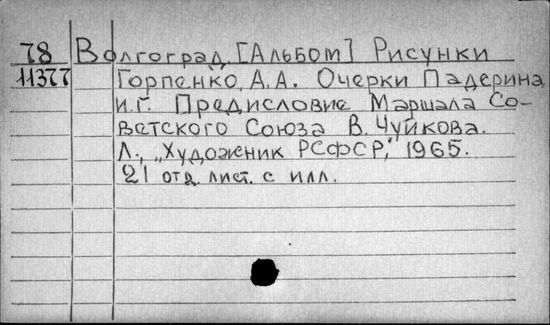 78 Волгоград [Альбом] Рисунки
11377 Горпенко А.А. Очерки Падерина
И.Г. Предисловие Маршала Со-
ветского Союза В. Чуйкова.
Л., „Художник РСФСР," 1965.
21 отд. лист. с илл.